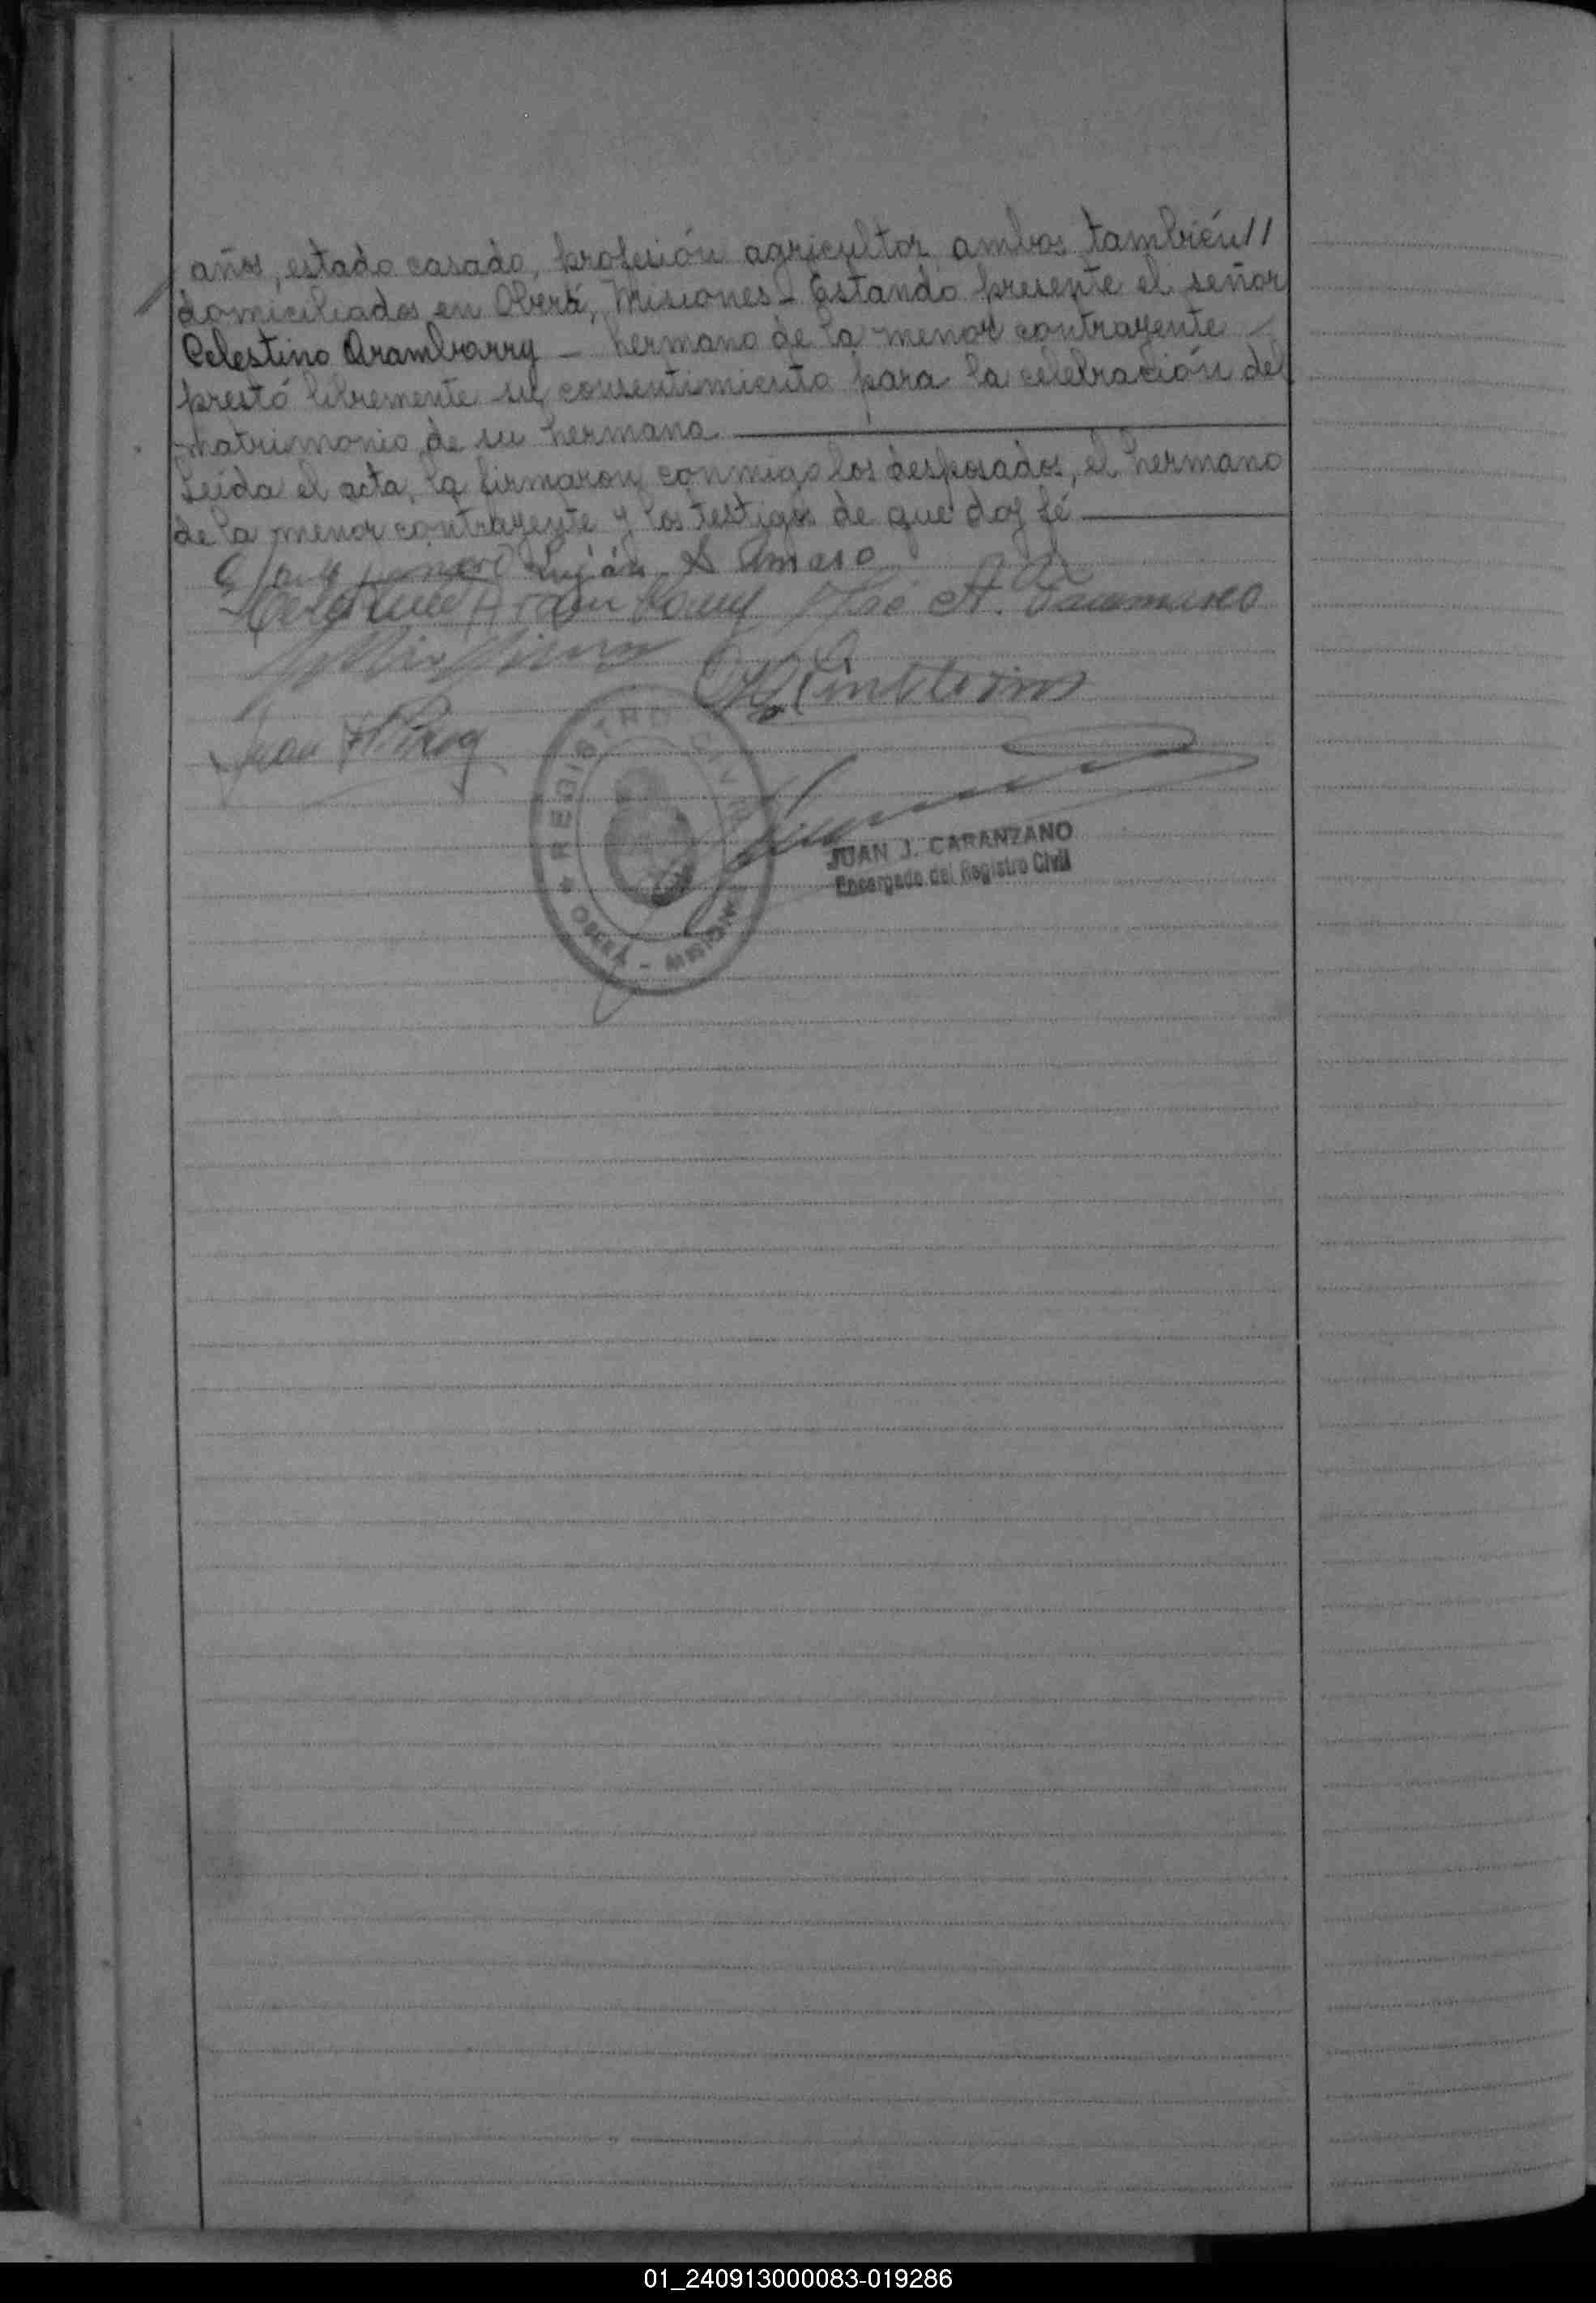 años, estado casado, profesión agricultor, ambos también //
domiciliados en Oberá, Misiones - Estando presente el señor
Celestino Arambarry - hermano de la menor contrayente
prestó libremente su consentimiento para la celebración del
matrimonio de su hermana
Leída el acta, la firmaron conmigo los desposados, el hermano
de la menor contrayente y los testigos de que doy fé
Luján A
A.
Juan
REGISTRO CIVIL
OBERÁ -
JUAN J. CARANZANO
Encargado del Registro Civil
01_240913000083-019286